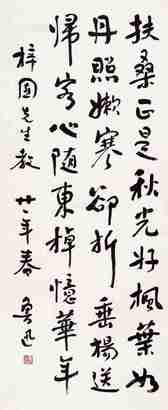 扶桑正是秋光好楓葉如
丹照嫩寒卻折垂楊送
歸客心隨東棹憶華年
梓園先生教 廿一年春 魯迅